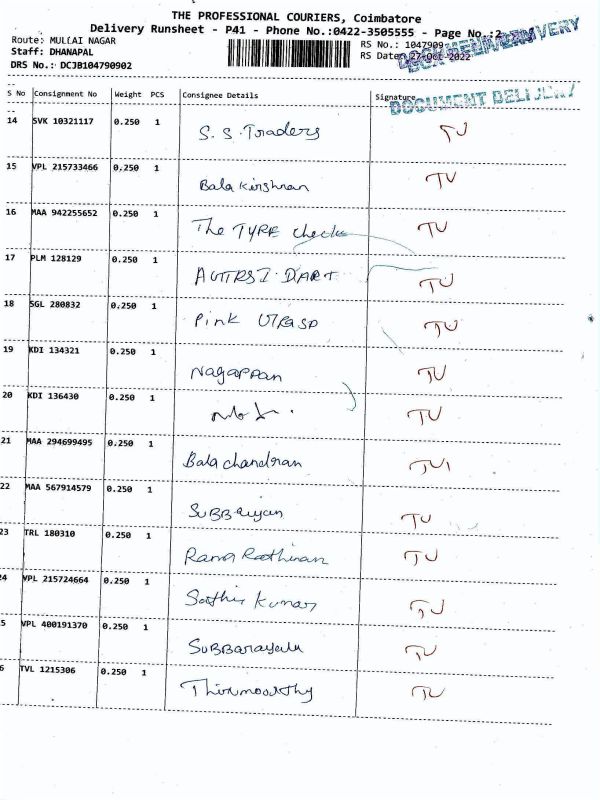 THE PROFESSIONAL COURIERS, Coimbatore
Delivery Runsheet - P41 - Phone No.:0422-3505555 - Page No.:2
Route: MULLAI NAGAR
RS No.: 1047909
Staff: DHANAPAL
RS Date: 27-Oct-2022
DRS No.: DCJB104790902
DOCUMENT DELIVERY
S No Consignment No Weight PCS Consignee Details Signature
14 SVK 10321117 0.250 1 S. S. Traders TU
15 VPL 215733466 0.250 1 Bala Kirshnan TU
16 MAA 942255652 0.250 1 The TYRE TU
17 PLM 128129 0.250 1 TU
18 SGL 280832 0.250 1 Pink TU
19 KDI 134321 0.250 1 Nagappan TU
20 KDI 136430 0.250 1 TU
21 MAA 294699495 0.250 1 Bala chandran TU
22 MAA 567914579 0.250 1 SUBBaiyan TU
23 TRL 180310 0.250 1 Rama TU
24 VPL 215724664 0.250 1 Sathis Kumar TU
5 VPL 400191370 0.250 1 SUBBarayalu TU
6 TVL 1215306 0.250 1 Thirumoorthy TU